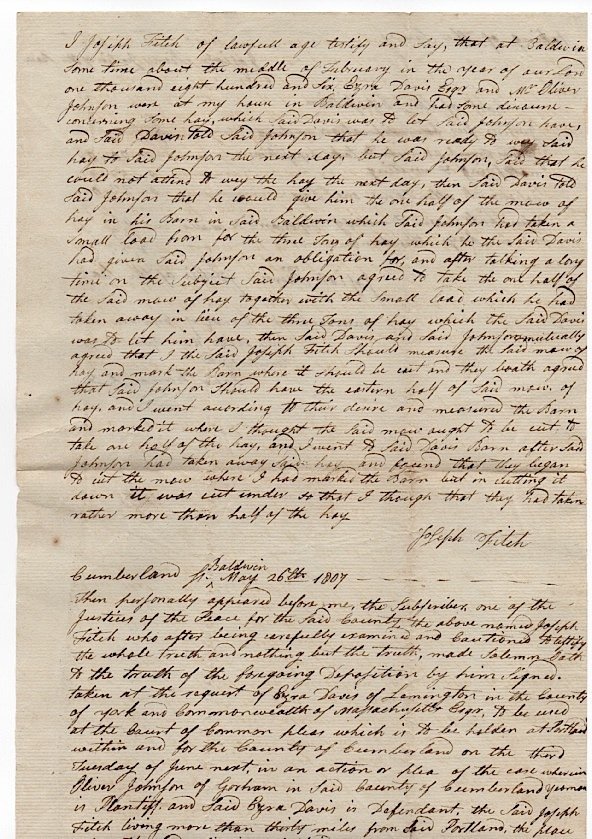 I Joseph Fitch of lawfull age testify and Say, that at Baldwin
Some time about the middle of February in the year of our Lord
one thousand eight hundred and Six, Ezra Davis Esqr and Mr Oliver
Johnson were at my house in Baldwin and had some discours
concerning Some hay, which Said Davis was to let Said Johnson have,
and Said Davis told Said Johnson that he was ready to wey Said
hay to Said Johnson the next day, but Said Johnson, Said that he
could not attend to wey the hay the next day, then Said Davis told
Said Johnson that he would give him the one half of the mow of
hay in his Barn in Said Baldwin which Said Johnson had taken a
Small load from for the three Tons of hay which he the Said Davis
had given Said Johnson an obligation for, and after talking a long
time on the Subject Said Johnson agreed to take the one half of
the Said mow of hay together with the Small load which he had
taken away in lieu of the three Tons of hay which the Said Davis
was to let him have, then Said Davis, and Said Johnson mutually
agreed that I the Said Joseph Fitch Should measure the Said mow of
hay and mark the Barn where it Should be cut and they boath agreed
that Said Johnson Should have the eastern half of Said mow of
hay, and I went according to their desire and measured the Barn
and marked it where I thought the Said mow ought to be cut to
take one half of the hay, and I went to Said Davis Barn after Said
Johnson had taken away Said hay and found that they began
to cut the mow where I had marked the Barn but in cutting it
down it was cut under so that I though that they had taken
rather more than half of the hay
Joseph Fitch
Baldwin
Cumberland Ss. ^ May 26th 1807
Then personally appeared before me, the Subscriber, one of the
Justices of the Peace for the Said County, the above named Joseph
Fitch who after being carefully examined and Cautioned to testify
the whole truth and nothing but the truth, made Solemn Oath
to the truth of the foregoing Deposition by him Signed.
taken at the request of Ezra Davis of Limington in the County
of York and Commonwealth of Massachusetts Esqr, to be used
at the Court of Common pleas which is to be holden at Portland
within and for the County of Cumberland on the third
Tuesday of June next, in an action or plea of the case wherein
Oliver Johnson of Gorham in Said County of Cumberland yeoman
is Plantiff, and Said Ezra Davis is Defendant, the Said Joseph
Fitch living more than thirty miles from Said Portland, the place